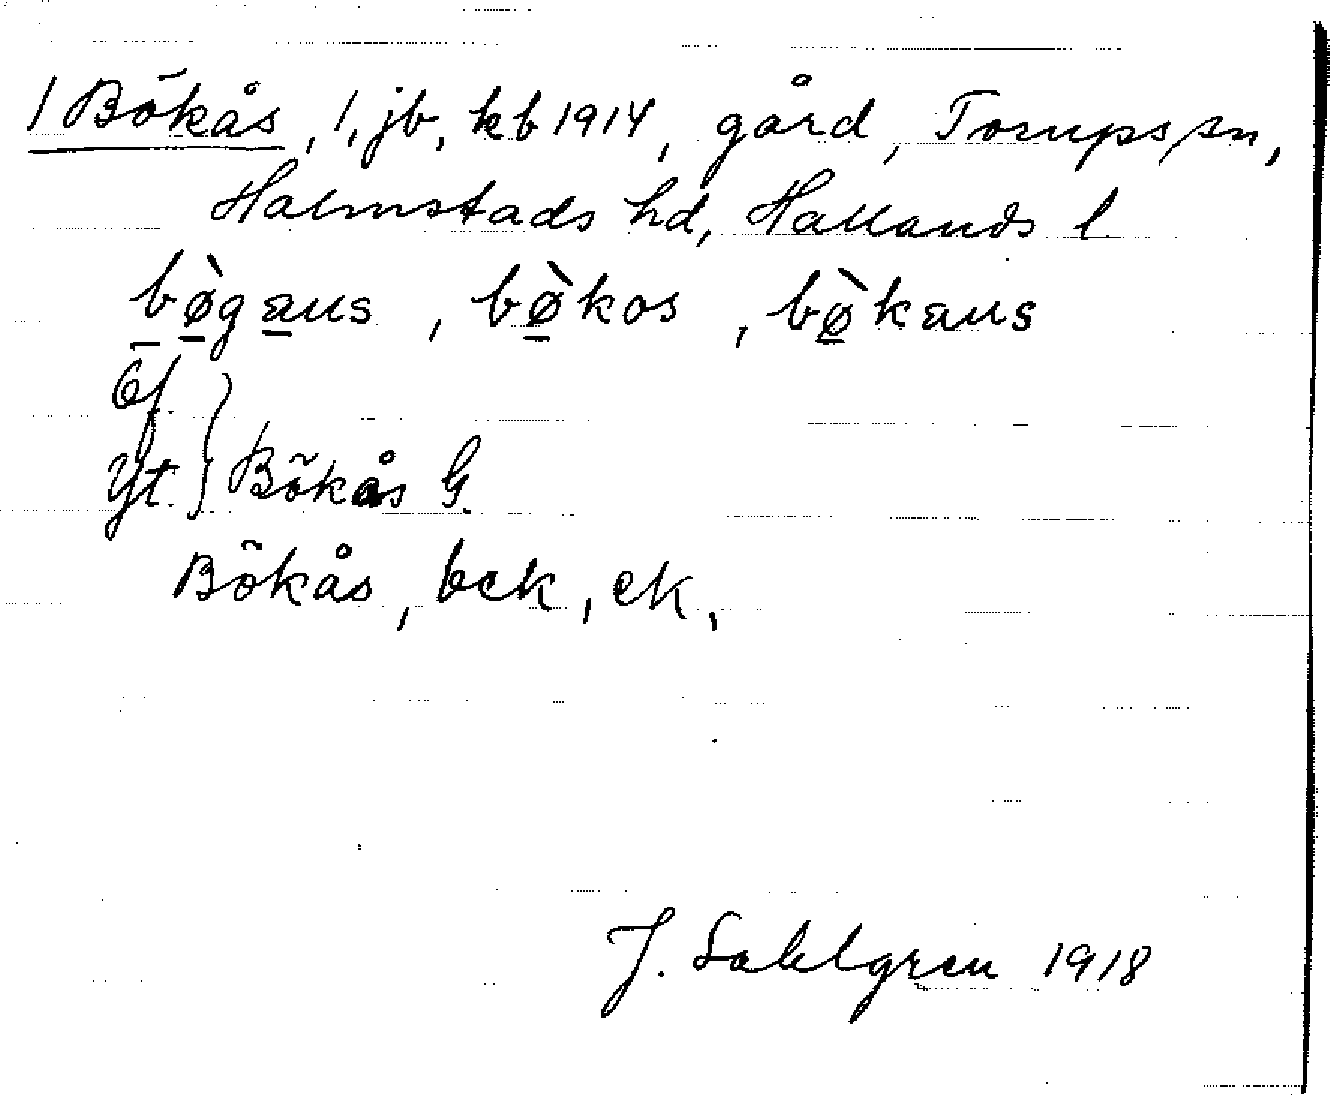 1 Bökås, 1, jb, kb 1914, gård, Torups sn,
Halmstads hd, Hallands l
bø̀gaus, bø̀kos, bø̀kaus
Öf
Yt } Bökås G.
Bökås, bck, ck,
J. Sahlgren 1918